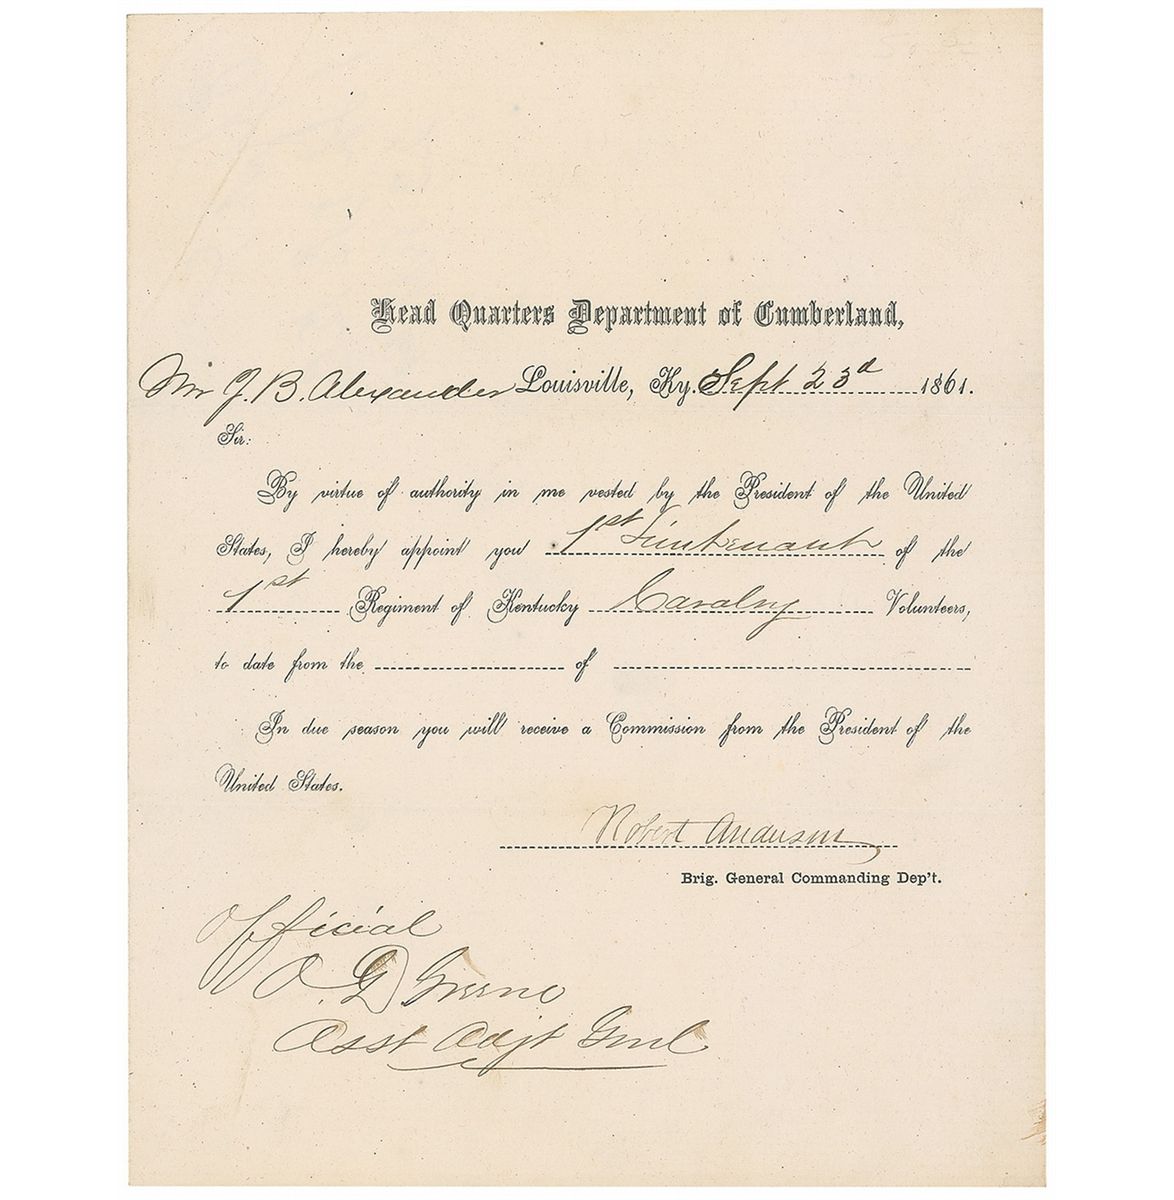 Head Quarters Department of Cumberland,
Mr J. B. Alexander Louisville, Ky. Sept 23d 1861.
Sir:
By virtue of authority in me vested by the President of the United
States, I hereby appoint you 1st Lieutenant of the
1st Regiment of Kentucky Cavalry Volunteers,
to date from the of
In due season you will receive a Commission from the President of the
United States.
Robert Anderson
Brig. General Commanding Dep't.
Official
O. D Greene
Asst Adjt Genl